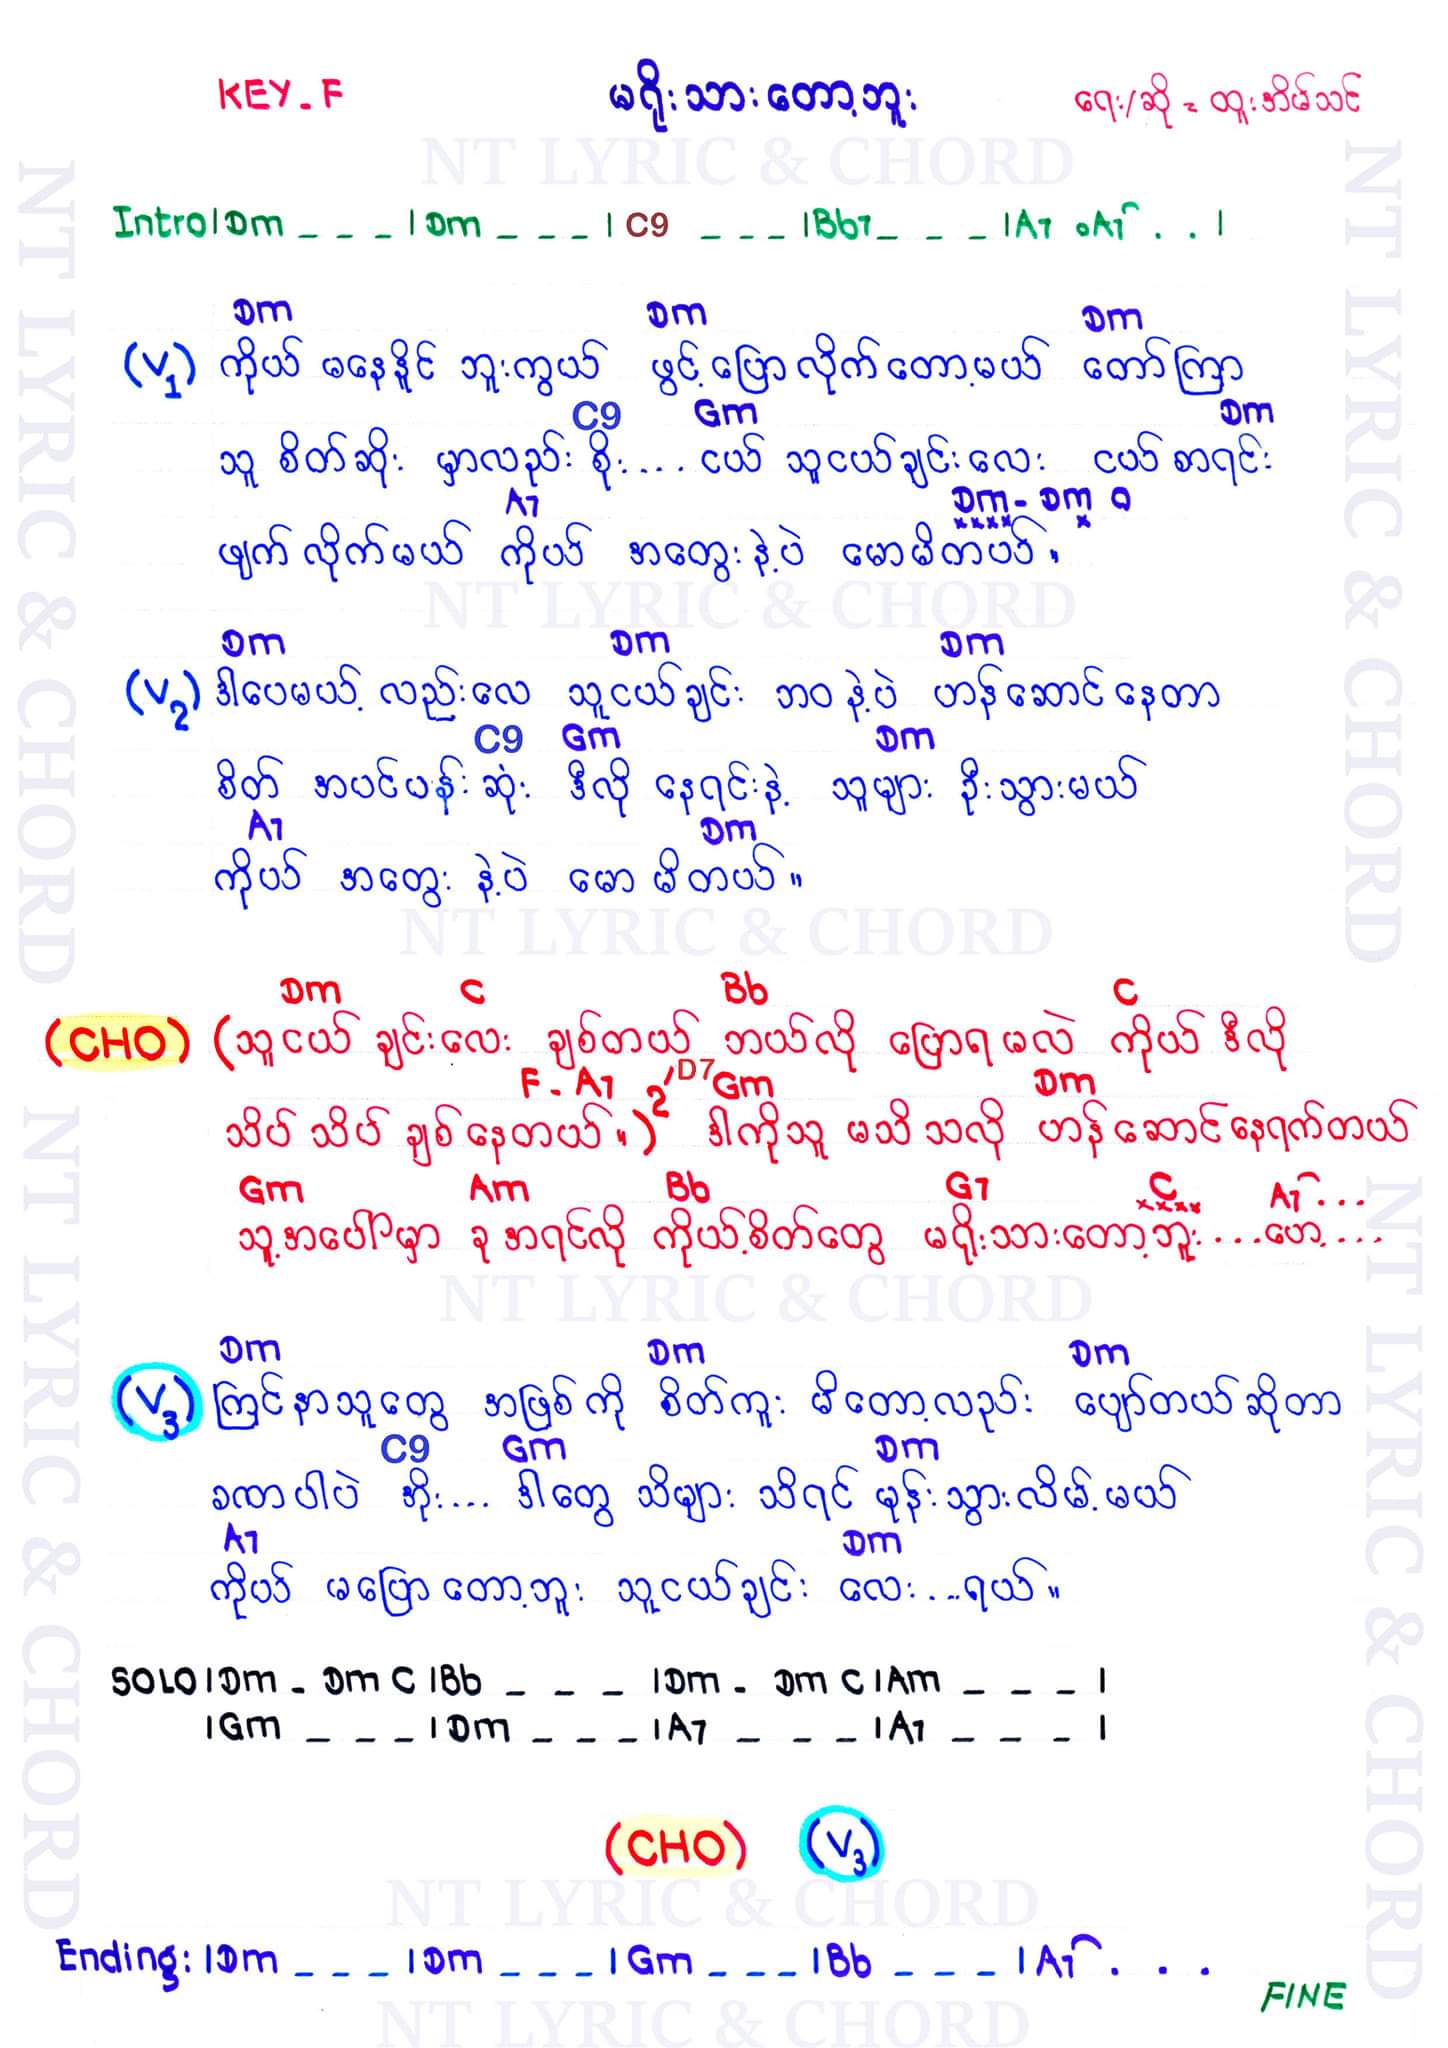 KEY - F
မရိုးသားတော့ဘူး
ရေး/ဆို = ထူးအိမ်သင်
NT LYRIC & CHORD
Intro|Dm _ _ _ |Dm _ _ _ | C9 _ _ _ |Bb7 _ _ _ |A7 oA7 . . |
Dm Dm Dm
(V1) ကိုယ် မနေနိူင် ဘူးကွယ် ဖွင့်ပြောလိုက်တော့မယ် တော်ကြာ
C9 Gm Dm
သူ စိတ်ဆိုး မှာလည်း စိုး.... ငယ် သူငယ်ချင်းလေး ငယ်စာရင်း
A7 Dm - Dm o
xxxx x
ဖျက်လိုက်မယ် ကိုယ် အတွေးနဲ့ပဲ မောမိတယ်။
NT LYRIC & CHORD
Dm Dm Dm
(V2) ဒါပေမယ့် လည်းလေ သူငယ်ချင်း ဘဝနဲ့ပဲ ဟန်ဆောင်နေတာ
C9 Gm Dm
စိတ် အပင်ပန်းဆုံး ဒီလို နေရင်းနဲ့ သူများ ဦးသွားမယ်
A7 Dm
ကိုယ် အတွေး နဲ့ပဲ မော မိတယ်။
NT LYRIC & CHORD
Dm C Bb C
(CHO) (သူငယ် ချင်းလေး ချစ်တယ် ဘယ်လို ပြောရမလဲ ကိုယ် ဒီလို
F - A7 D7 Gm Dm
သိပ် သိပ် ချစ်နေတယ်။)2 ဒါကိုသူ မသိသလို ဟန်ဆောင်နေရက်တယ်
Gm Am Bb G7 C A7 ...
xxxx
သူ့အပေါ်မှာ ခုအရင်လို ကိုယ့်စိတ်တွေ မရိုးသားတော့ဘူး ... ဟေ့....
NT LYRIC & CHORD
Dm Dm Dm
(V3) ကြင်နာသူတွေ အဖြစ်ကို စိတ်ကူး မိတော့လည်း ပျော်တယ်ဆိုတာ
C9 Gm Dm
ခဏပါပဲ အိုး... ဒါတွေ သိများ သိရင် မုန်းသွားလိမ့်မယ်
A7 Dm
ကိုယ် မပြောတော့ဘူး သူငယ်ချင်း လေး...ရယ်။
SOLO|Dm - Dm C|Bb _ _ _ |Dm - Dm C|Am _ _ _ |
|Gm _ _ _ |Dm _ _ _ |A7 _ _ _ |A7 _ _ _ |
(CHO) (V3)
NT LYRIC & CHORD
Ending: |Dm _ _ _ |Dm _ _ _ |Gm _ _ _ |Bb _ _ _ |A7 . . .
FINE
NT LYRIC & CHORD
NT LYRIC & CHORD
NT LYRIC & CHORD
NT LYRIC & CHORD
NT LYRIC & CHORD